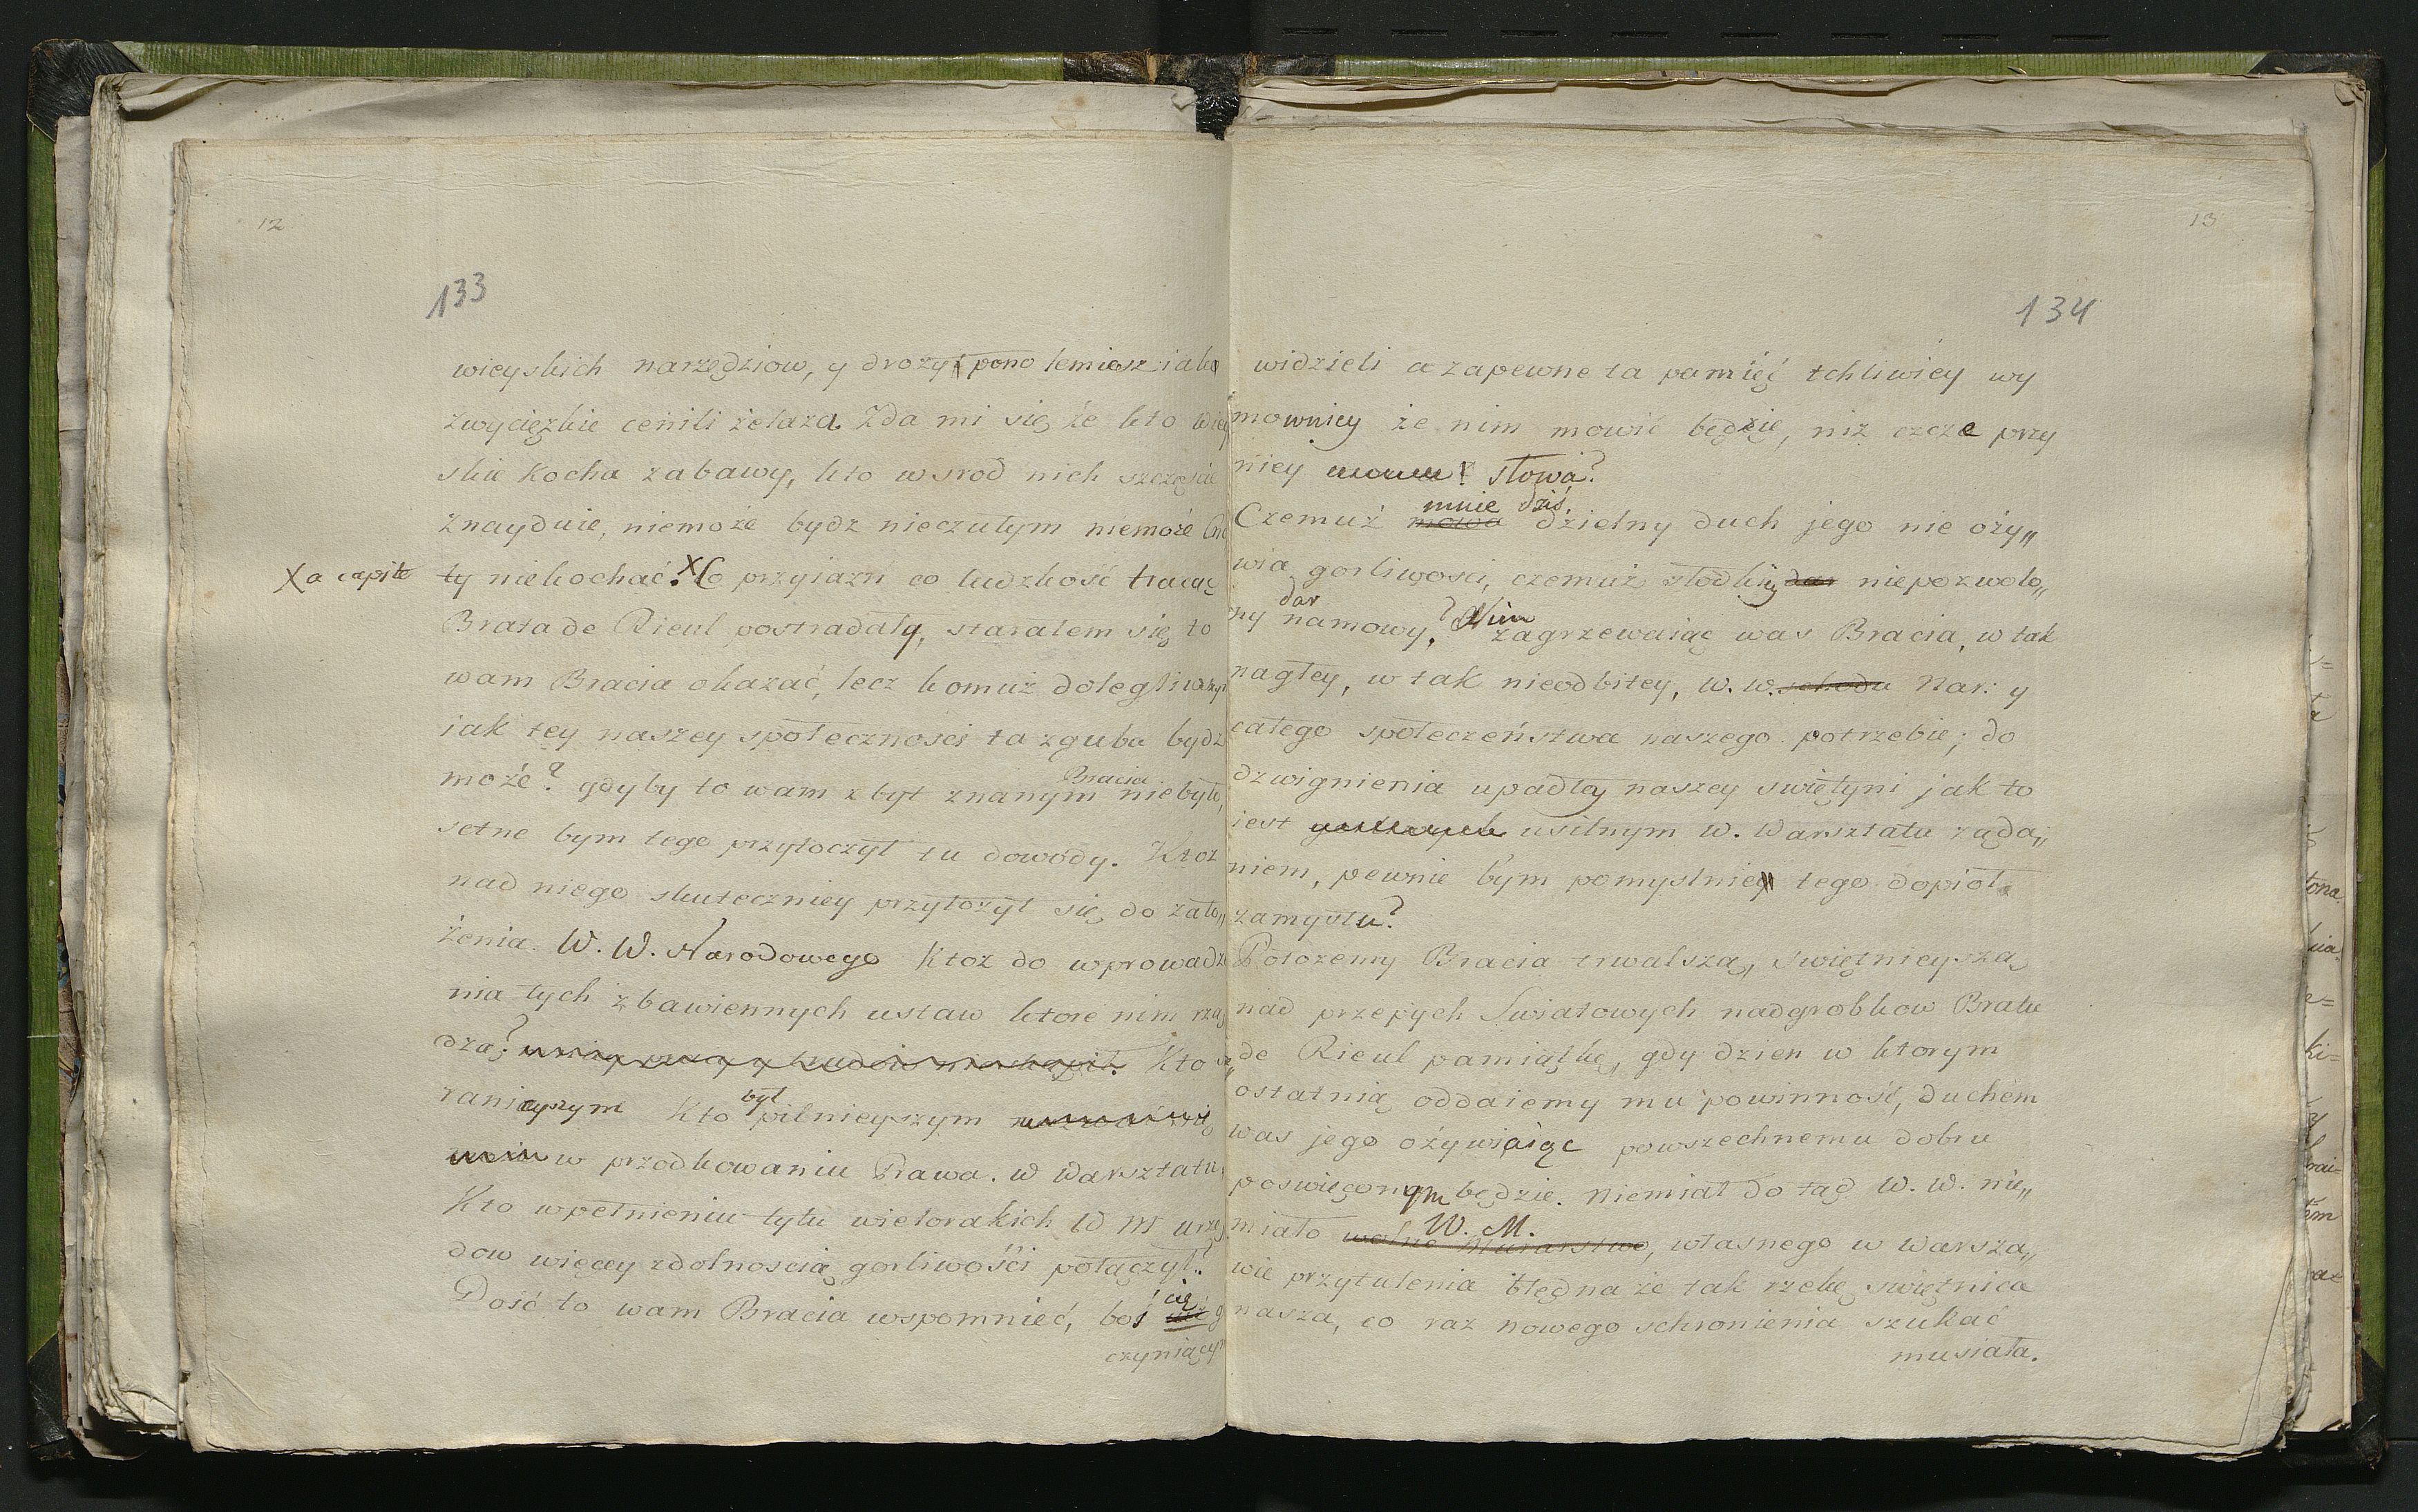 12
133
wieyskich narzędziow, y drozy pono lemiesz iak
zwycięzkie cenili żelaza. Zda mi się że kto wiey
skie kocha zabawy, kto wsrod nich szczęscie
znayduie, niemoże bydz nieczułym niemoże
X a capite ty niekochać. X Co przyiazń co ludzkość tracąc
Brata de Rieul postradały, starałem się to
wam Bracia okazać, lecz komuż dolegliwszą
iak tey naszey społecznosci ta zguba bydz
Bracia
może? gdyby to wam zbyt znanym niebyło,
setne bym tego przytoczył tu dowody. Ktoz
nad niego skuteczniey przyłożył się do zało„
żenia W. W. Narodowego Ktoz do wprowadze
nia tych zbawiennych ustaw ktore nim rzą
dzą? Kto sta„
rannieyszym Kto był pilnieyszym
w przodkowaniu Prawa. w Warsztatu
Kto wpełnieniu tylu wielorakich W M urzę
dow więcey zdolnoscią gorliwości połączył?
Dość to wam Bracia wspomnieć, boś cię
czyniący
13
134
widzieli a zapewne ta pamięć tchliwiey wy
mowniey że nim mowić będzie, niz czcze przy
niey słowa?
mnie dziś
Czemuż dzielny duch jego nie oży„
wia gorliwosci, czemuż słodki dar niepozwolo„
ny dar namowy? Nim zagrzewaiąc was Bracia, w tak
nagłey, w tak nieodbitey, W. W. schodu Nar: y
całego społeczeństwa naszego potrzebie; do
dzwignienia upadłey naszey swiętyni jak to
iest usilnym W. Warsztatu ząda„
niem, pewnie bym pomyslniey tego dopioł
zamysłu?
Połozemy Bracia trwalszą, swiętnieyszą
nad przepych Swiatowych nadgrobkow Bratu
de Rieul pamiątkę, gdy dzien w ktorym
ostatnią oddaiemy mu powinność, duchem
was jego ożywiaiąc powszechnemu dobru
poswięconym będzie. Niemiał do tąd W. W. nie„
W. M.
miało wolne Murarstwo, własnego w Warsza„
wie przytulenia błędna że tak rzekę swiętnica
nasza, co raz nowego schronienia szukać
musiała.